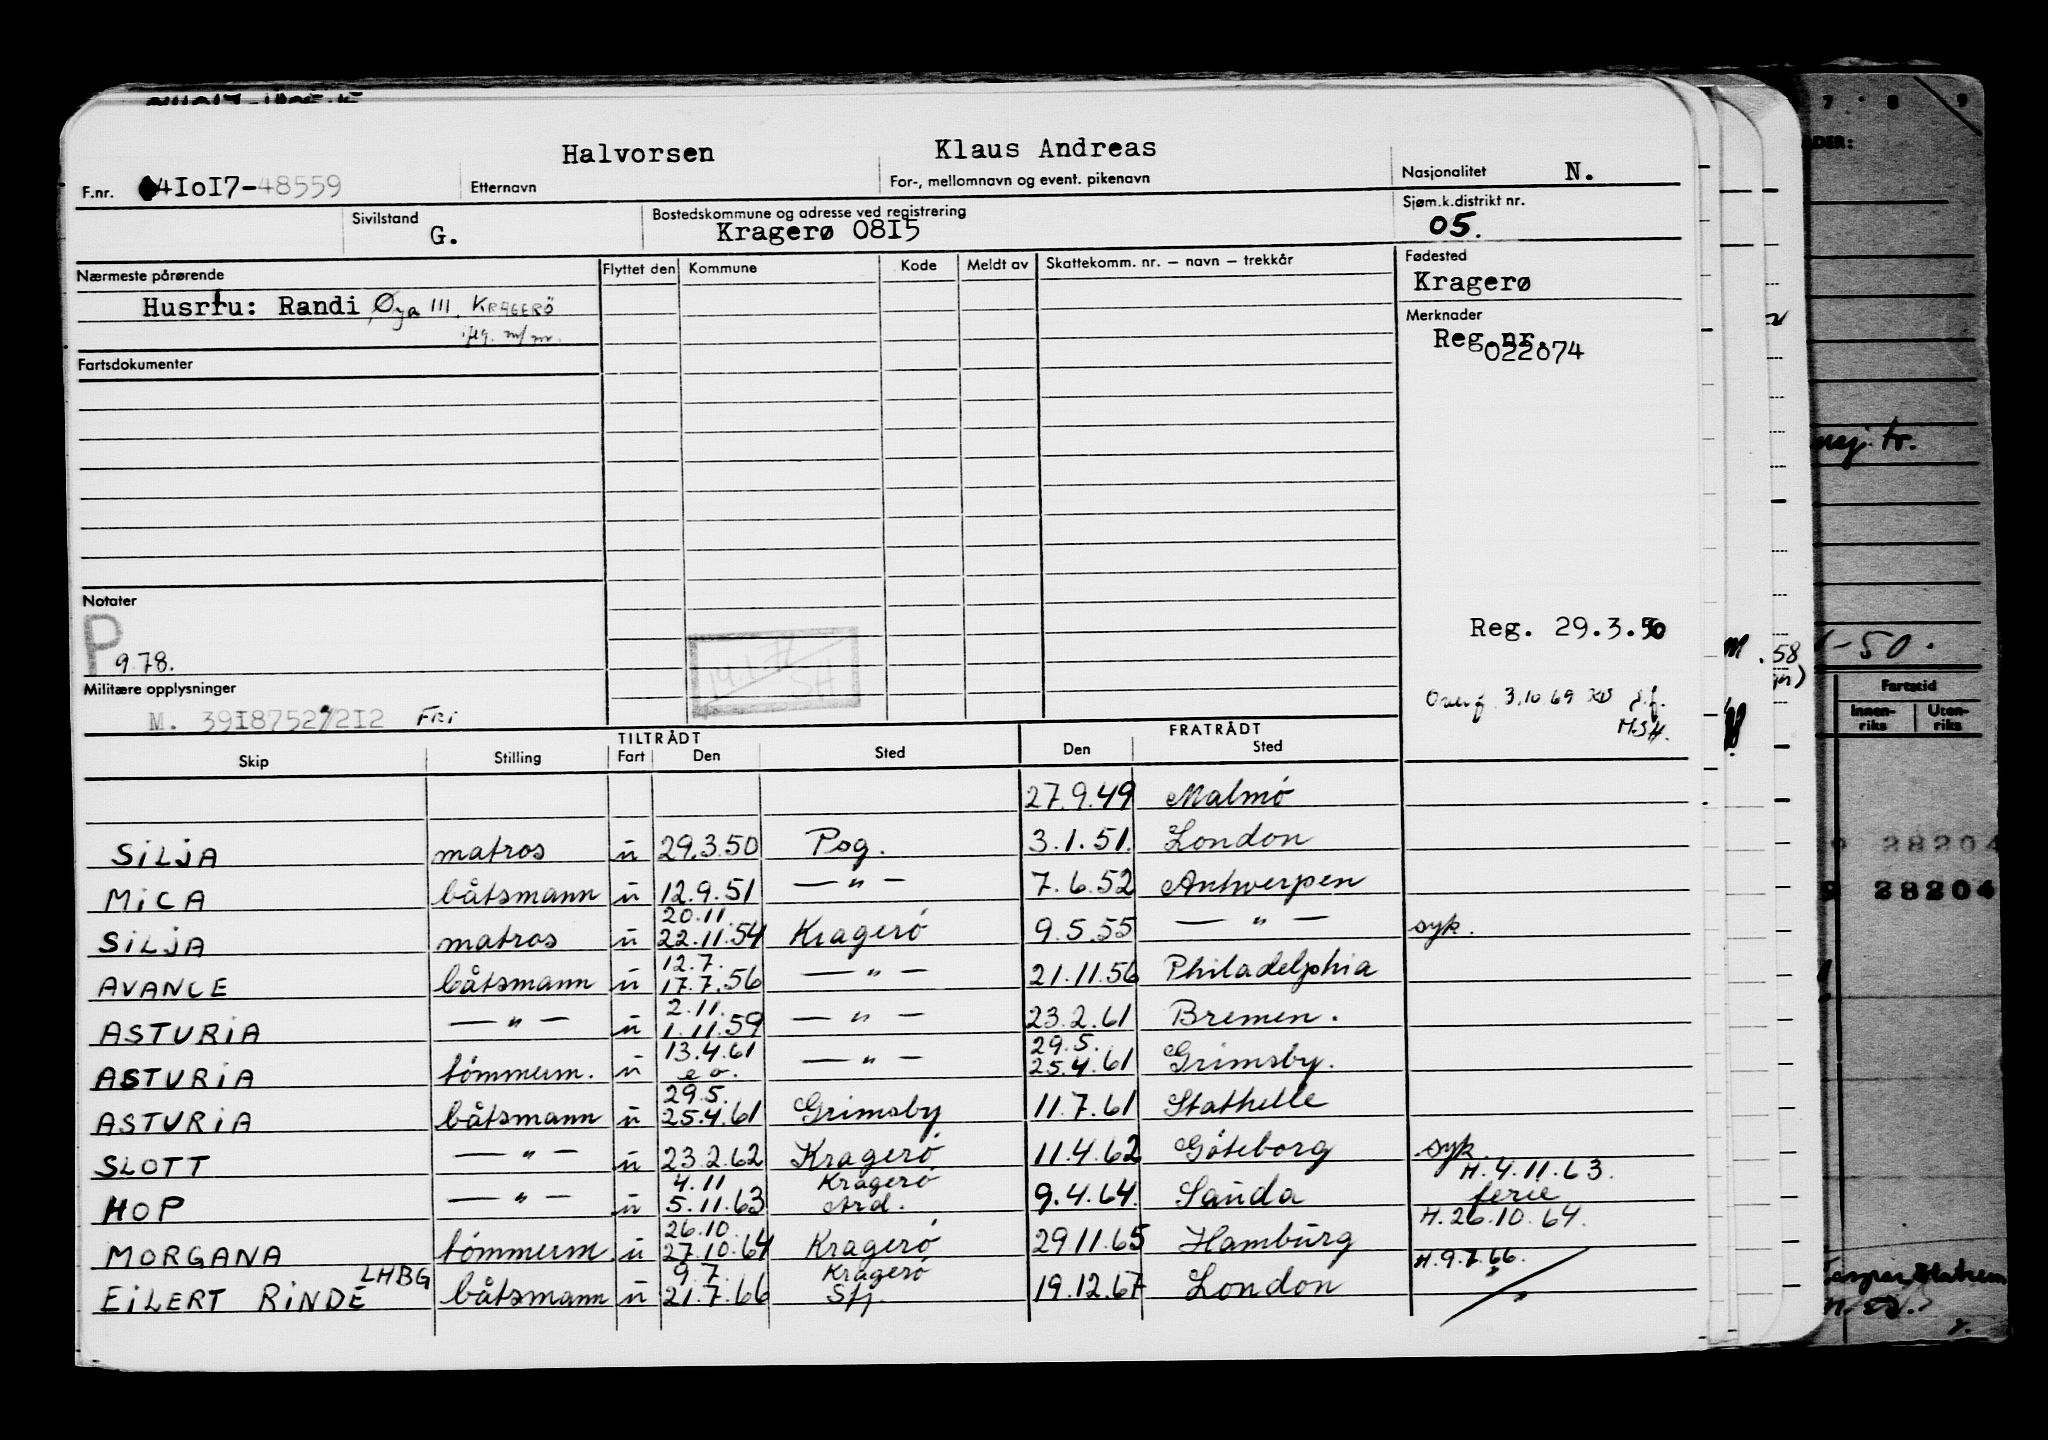 Halvorsen Klaus Andreas
F.nr. 41o17-48559 Etternavn For-, mellomnavn og event. pikenavn Nasjonalitet N.
Sivilstand G. Bostedskommune og adresse ved registrering Kragerø 0815 Sjøm.k.distrikt nr. 05.
Nærmeste pårørende Flyttet den Kommune Kode Meldt av Skattekomm. nr. – navn – trekkår Fødested
Kragerø
Husrfu: Randi Øya 111. KRAGERÖ
Merknader
Reg.nr.
022874
Fartsdokumenter
Notater
P
9.78.
Reg. 29.3.50
Militære opplysninger
M. 39187529/212 FRI
Overf. 3.10.69
M.S.H.
TILTRÅDT FRATRÅDT
Skip Stilling Fart Den Sted Den Sted
27.9.49 Malmö
SILJA matros u 29.3.50 Psg. 3.1.51. London
MICA båtsmann u 12.9.51 — " — 7.6.52 Antwerpen
20.11.
SILJA matros u 22.11.54 Kragerö 9.5.55 — " — syk.
12.7.
AVANCE båtsmann u 17.7.56 — " — 21.11.56 Philadelphia
2.11.
ASTURIA — " — u 1.11.59 — " — 23.2.61 Bremen.
13.4.61 29.5.
ASTURIA tömmerm. u e o. — " — 25.4.61 Grimsby.
29.5.
ASTURIA båtsmann u 25.4.61 Grimsby 11.7.61 Stathelle
SLOTT — " — u 23.2.62 Kragerö 11.4.62 Göteborg syk.
4.11 Kragerö H.4.11.63.
HOP — " — u 5.11.63 Ard. 9.4.64. Sauda ferie
26.10. H.26.10.64.
MORGANA tömmerm. u 27.10.64 Kragerö 29.11.65 Hamburg
LHBG 9.7. Kragerö H.9.7.66.
EILERT RINDE båtsmann u 21.7.66 Sfj. 19.12.67 London "
7 8 9
-50.
Fartstid
Innen-riks Uten-riks
.58
28204
28204